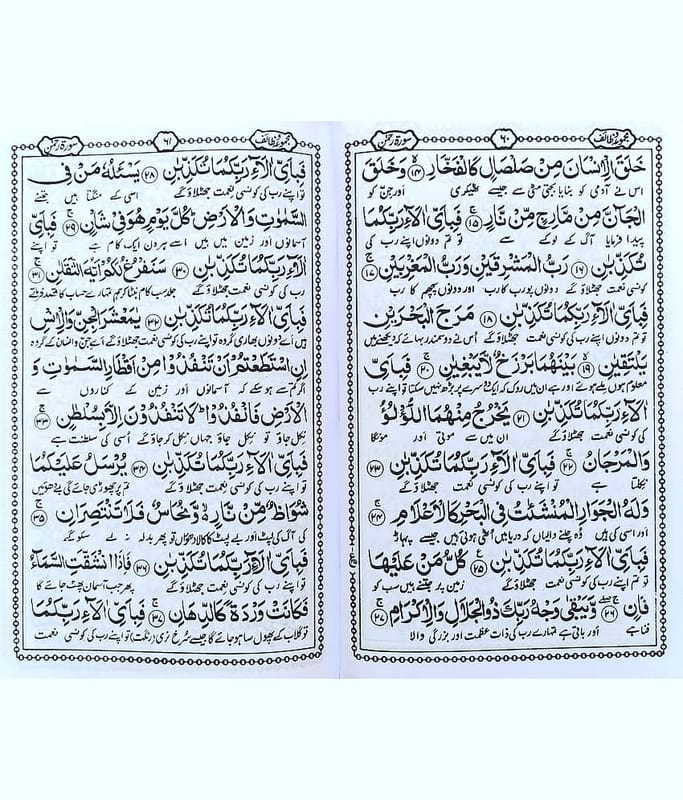 مجموعۂ وظائف ۶۰ سورۃ رحمٰن
خَلَقَ الْاِنْسَانَ مِنْ صَلْصَالٍ كَالْفَخَّارِ ۙ﴿۱۴﴾ وَخَلَقَ
اس نے آدمی کو بنایا بجتی مٹی سے جیسے ٹھیکری اور جن کو
الْجَآنَّ مِنْ مَّارِجٍ مِّنْ نَّارٍ ۚ﴿۱۵﴾ فَبِاَيِّ اٰلَآءِ رَبِّكُمَا
پیدا فرمایا آگ کے لوکے سے تو تم دونوں اپنے رب کی
تُكَذِّبٰنِ ﴿۱۶﴾ رَبُّ الْمَشْرِقَيْنِ وَرَبُّ الْمَغْرِبَيْنِ ۚ﴿۱۷﴾
کونسی نعمت جھٹلاؤ گے دونوں پورب کا رب اور دونوں پچھم کا رب
فَبِاَيِّ اٰلَآءِ رَبِّكُمَا تُكَذِّبٰنِ ﴿۱۸﴾ مَرَجَ الْبَحْرَيْنِ
تو تم دونوں اپنے رب کی کونسی نعمت جھٹلاؤ گے اس نے دو سمندر بہائے کہ دیکھنے میں
يَلْتَقِيٰنِ ۙ﴿۱۹﴾ بَيْنَهُمَا بَرْزَخٌ لَّا يَبْغِيٰنِ ۚ﴿۲۰﴾ فَبِاَيِّ
معلوم ہوں ملے ہوئے اور ہے ان میں روک کہ ایک دوسرے پر بڑھ نہیں سکتا تو اپنے رب
اٰلَآءِ رَبِّكُمَا تُكَذِّبٰنِ ﴿۲۱﴾ يَخْرُجُ مِنْهُمَا اللُّؤْلُؤُ
کی کونسی نعمت جھٹلاؤ گے ان میں سے موتی اور مونگا
وَالْمَرْجَانُ ۚ﴿۲۲﴾ فَبِاَيِّ اٰلَآءِ رَبِّكُمَا تُكَذِّبٰنِ ﴿۲۳﴾
نکلتا ہے تو اپنے رب کی کونسی نعمت جھٹلاؤ گے
وَلَهُ الْجَوَارِ الْمُنْشَئٰتُ فِي الْبَحْرِ كَالْاَعْلَامِ ۚ﴿۲۴﴾
اور اسی کی ہیں وہ چلنے والیاں کہ دریا میں اٹھی ہوئی ہیں جیسے پہاڑ
فَبِاَيِّ اٰلَآءِ رَبِّكُمَا تُكَذِّبٰنِ ﴿۲۵﴾ كُلُّ مَنْ عَلَيْهَا
تو تم اپنے رب کی کونسی نعمت جھٹلاؤ گے زمین پر جتنے ہیں سب کو
فَانٍ ۚ﴿۲۶﴾ وَّيَبْقٰى وَجْهُ رَبِّكَ ذُو الْجَلَالِ وَالْاِكْرَامِ ۚ﴿۲۷﴾
فنا ہے اور باقی ہے تمہارے رب کی ذات عظمت اور بزرگی والا
مجموعۂ وظائف ۶۱ سورۃ رحمٰن
فَبِاَيِّ اٰلَآءِ رَبِّكُمَا تُكَذِّبٰنِ ﴿۲۸﴾ يَسْـَٔلُهٗ مَنْ فِي
تو اپنے رب کی کونسی نعمت جھٹلاؤ گے اسی کے منگتا ہیں جتنے
السَّمٰوٰتِ وَالْاَرْضِ ؕ كُلَّ يَوْمٍ هُوَ فِيْ شَاْنٍ ۚ﴿۲۹﴾ فَبِاَيِّ
آسمانوں اور زمین میں ہیں اسے ہر دن ایک کام ہے تو اپنے
اٰلَآءِ رَبِّكُمَا تُكَذِّبٰنِ ﴿۳۰﴾ سَنَفْرُغُ لَكُمْ اَيُّهَ الثَّقَلٰنِ ۚ﴿۳۱﴾
رب کی کونسی نعمت جھٹلاؤ گے جلد سب کام نبٹا کر ہم تمہارے حساب کا قصد فرماتے
فَبِاَيِّ اٰلَآءِ رَبِّكُمَا تُكَذِّبٰنِ ﴿۳۲﴾ يٰمَعْشَرَ الْجِنِّ وَالْاِنْسِ
ہیں اے دونوں بھاری گروہ تو اپنے رب کی کونسی نعمت جھٹلاؤ گے اے جن و انسان کے گروہ
اِنِ اسْتَطَعْتُمْ اَنْ تَنْفُذُوْا مِنْ اَقْطَارِ السَّمٰوٰتِ وَ
اگر تم سے ہو سکے کہ آسمانوں اور زمین کے کناروں سے
الْاَرْضِ فَانْفُذُوْا ؕ لَا تَنْفُذُوْنَ اِلَّا بِسُلْطٰنٍ ۚ﴿۳۳﴾
نکل جاؤ تو نکل جاؤ جہاں نکل کر جاؤ گے اسی کی سلطنت ہے
فَبِاَيِّ اٰلَآءِ رَبِّكُمَا تُكَذِّبٰنِ ﴿۳۴﴾ يُرْسَلُ عَلَيْكُمَا
تو اپنے رب کی کونسی نعمت جھٹلاؤ گے تم پر چھوڑی جائے گی
شُوَاظٌ مِّنْ نَّارٍ ۙ وَّنُحَاسٌ فَلَا تَنْتَصِرٰنِ ۚ﴿۳۵﴾
کی آگ کی لپٹ اور بے لپٹ کا کالا دھواں تو پھر بدلہ نہ لے سکو گے
فَبِاَيِّ اٰلَآءِ رَبِّكُمَا تُكَذِّبٰنِ ﴿۳۶﴾ فَاِذَا انْشَقَّتِ السَّمَآءُ
تو اپنے رب کی کونسی نعمت جھٹلاؤ گے پھر جب آسمان پھٹ جائے گا
فَكَانَتْ وَرْدَةً كَالدِّهَانِ ۚ﴿۳۷﴾ فَبِاَيِّ اٰلَآءِ رَبِّكُمَا
تو گلاب کے پھول سا ہو جائے گا جیسے سرخ نری (رنگت) تو اپنے رب کی کونسی نعمت